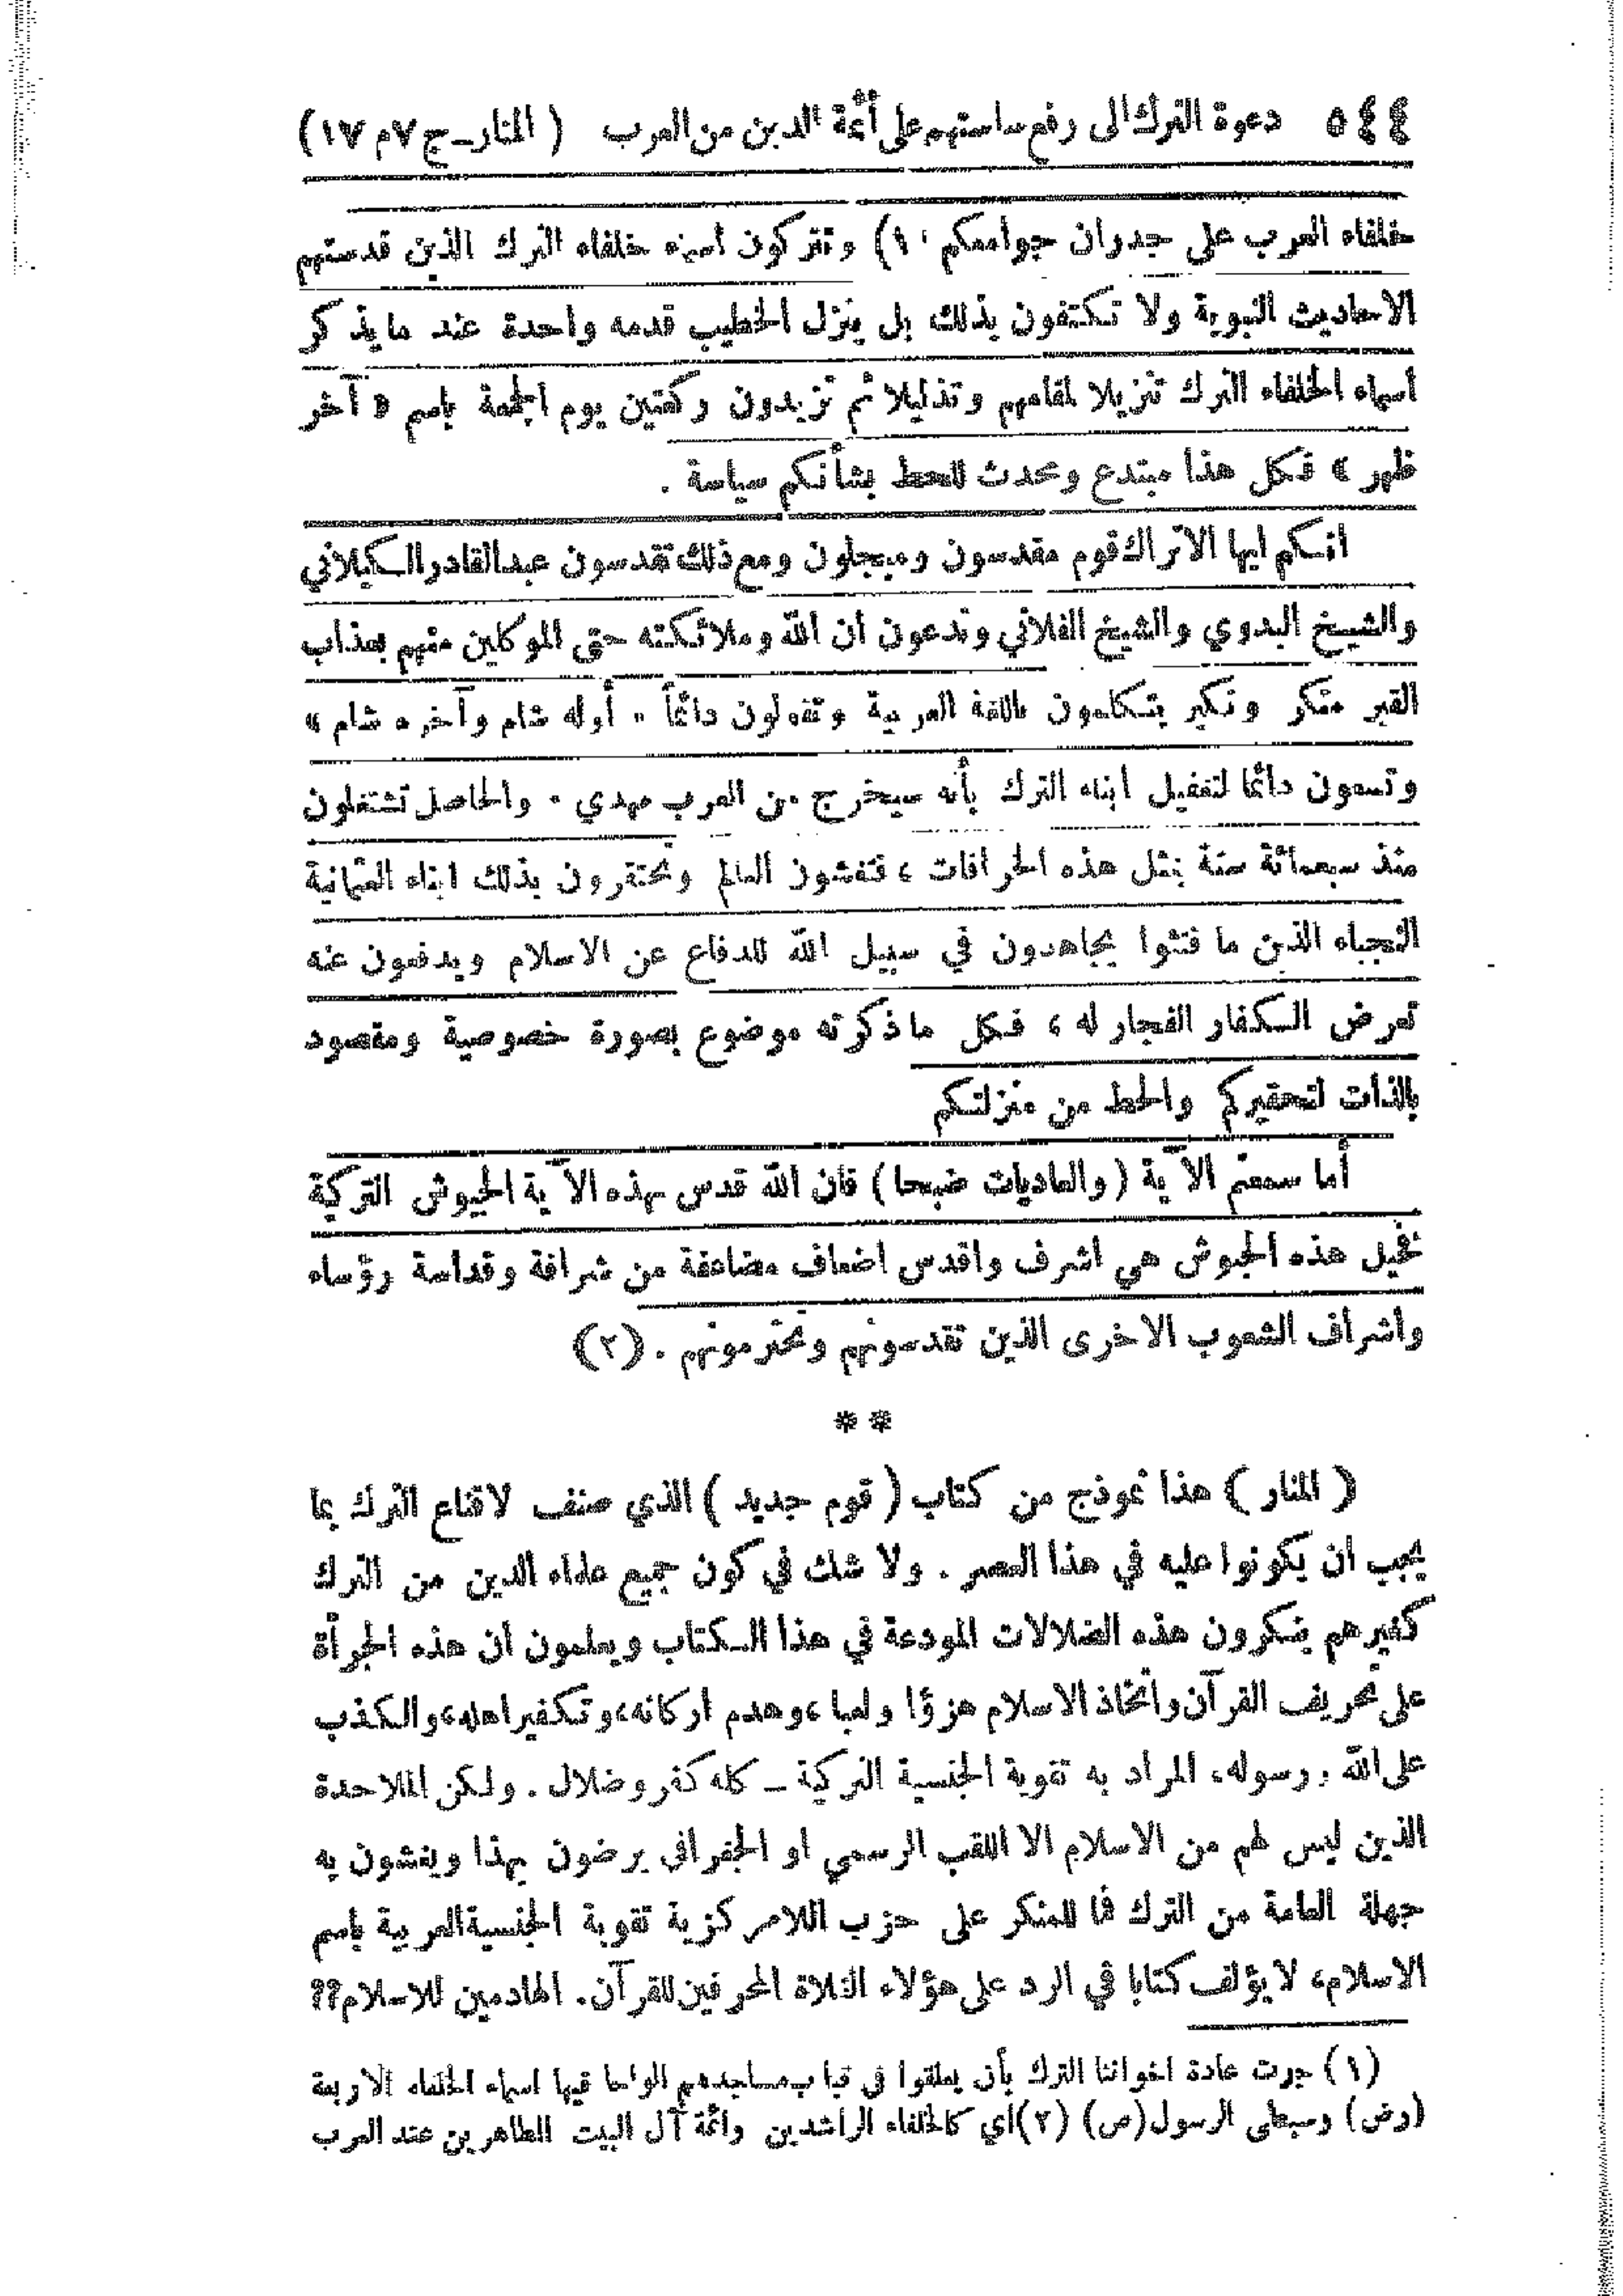 ٥٤٤ دعوة الترك الى رفع ساستهم على أئمة الدين من العرب ( المنار ــ ج ٧ م ١٧ )
خلفاء العرب على جدران جوامعكم (١) وتتركون اسماء خلفاء الترك الذين قدستهم
الاحاديث النبوية ولا تكتفون بذلك بل ينزل الخطيب قدمه واحدة عند ما يذكر
أسماء الخلفاء الترك تنزيلا لمقامهم وتذليلا ثم تزيدون ركعتين يوم الجمعة باسم « آخر
ظهر » فكل هذا مبتدع ومحدث للحط بشأنكم سياسة .
انكم ايها الاتراك قوم مقدسون ومبجلون ومع ذلك تقدسون عبد القادر الكيلاني
والشيخ البدوي والشيخ الفلاني وتدعون ان الله وملائكته حتى الموكلين منهم بعذاب
القبر منكر ونكير يتكلمون باللغة العربية وتقولون دائماً « أوله شام وآخره شام »
وتسعون دائما لتغفيل ابناء الترك بأنه سيخرج من العرب مهدي . والحاصل تشتغلون
منذ سبعمائة سنة بمثل هذه الخرافات ، فتغشون العالم وتحتقرون بذلك ابناء العثمانية
النجباء الذين ما فتئوا يجاهدون في سبيل الله للدفاع عن الاسلام ويدفعون عنه
تعرض الكفار الفجار له ، فكل ما ذكرته موضوع بصورة خصوصية ومقصود
بالذات لتحقيركم والحط من منزلتكم
أما سمعتم الآية ( والعاديات ضبحا ) فان الله قدس بهذه الآية الجيوش التركية
فخيل هذه الجيوش هي اشرف واقدس اضعاف مضاعفة من شرافة وقداسة رؤساء
واشراف الشعوب الاخرى الذين تقدسونهم وتحترمونهم . (٢)
* *
( المنار ) هذا نموذج من كتاب ( قوم جديد ) الذي صنف لاقناع الترك بما
يجب ان يكونوا عليه في هذا العصر . ولا شك في كون جميع علماء الدين من الترك
كغيرهم ينكرون هذه الضلالات المودعة في هذا الكتاب ويعلمون ان هذه الجرأة
على تحريف القرآن واتخاذ الاسلام هزؤا ولعبا ، وهدم اركانه ، وتكفير اهله ، والكذب
على الله ورسوله ، المراد به تقوية الجنسية التركية ــ كله كفر وضلال . ولكن الملاحدة
الذين ليس لهم من الاسلام الا اللقب الرسمي او الجغرافي يرضون بهذا ويغشون به
جهلة العامة من الترك فما للمنكر على حزب اللامركزية تقوية الجنسية العربية باسم
الاسلام ، لا يؤلف كتابا في الرد على هؤلاء الغلاة المحرفين للقرآن . الهادمين للاسلام ؟؟
(١) جرت عادة اخواننا الترك بأن يعلقوا في قباب مساجدهم الواحا فيها اسماء الخلفاء الاربعة
(رض) وسبطى الرسول (ص) (٢) أي كالخلفاء الراشدين وائمة آل البيت الطاهرين عند العرب